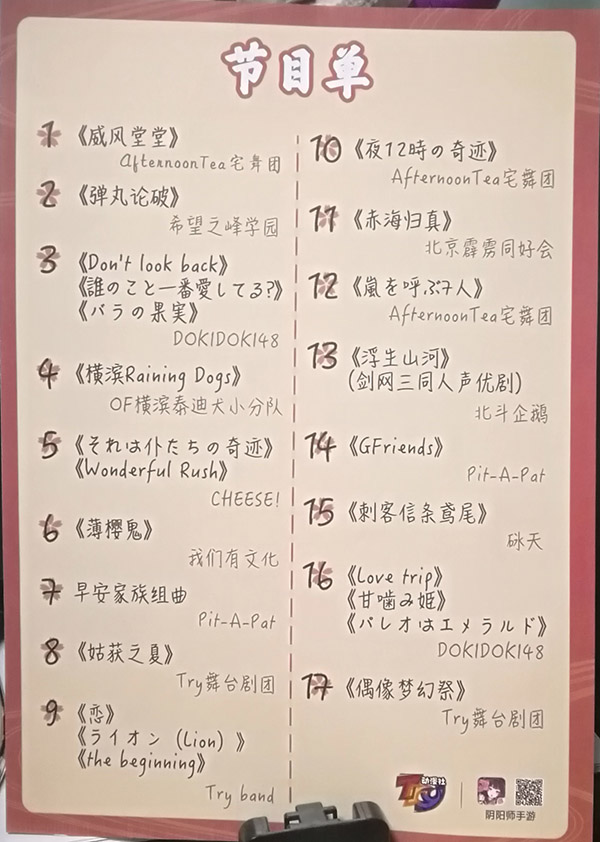 节目单
1 《威风堂堂》
AfternoonTea宅舞团
2 《弹丸论破》
希望之峰学园
3 《Don't look back》
《誰のこと一番愛してる?》
《バラの果実》
DOKIDOKI48
4 《横滨Raining Dogs》
OF横滨泰迪犬小分队
5 《それは仆たちの奇迹》
《Wonderful Rush》
CHEESE!
6 《薄樱鬼》
我们有文化
7 早安家族组曲
Pit-A-Pat
8 《姑获之夏》
Try舞台剧团
9 《恋》
《ライオン (Lion) 》
《the beginning》
Try band
10 《夜12時の奇迹》
AfternoonTea宅舞团
11 《赤海归真》
北京霹雳同好会
12 《嵐を呼ぶ7人》
AfternoonTea宅舞团
13 《浮生山河》
(剑网三同人声优剧)
北斗企鹅
14 《GFriends》
Pit-A-Pat
15 《刺客信条鸢尾》
砯天
16 《Love trip》
《甘噛み姫》
《パレオはエメラルド》
DOKIDOKI48
17 《偶像梦幻祭》
Try舞台剧团
Try 动漫社
阴阳师手游